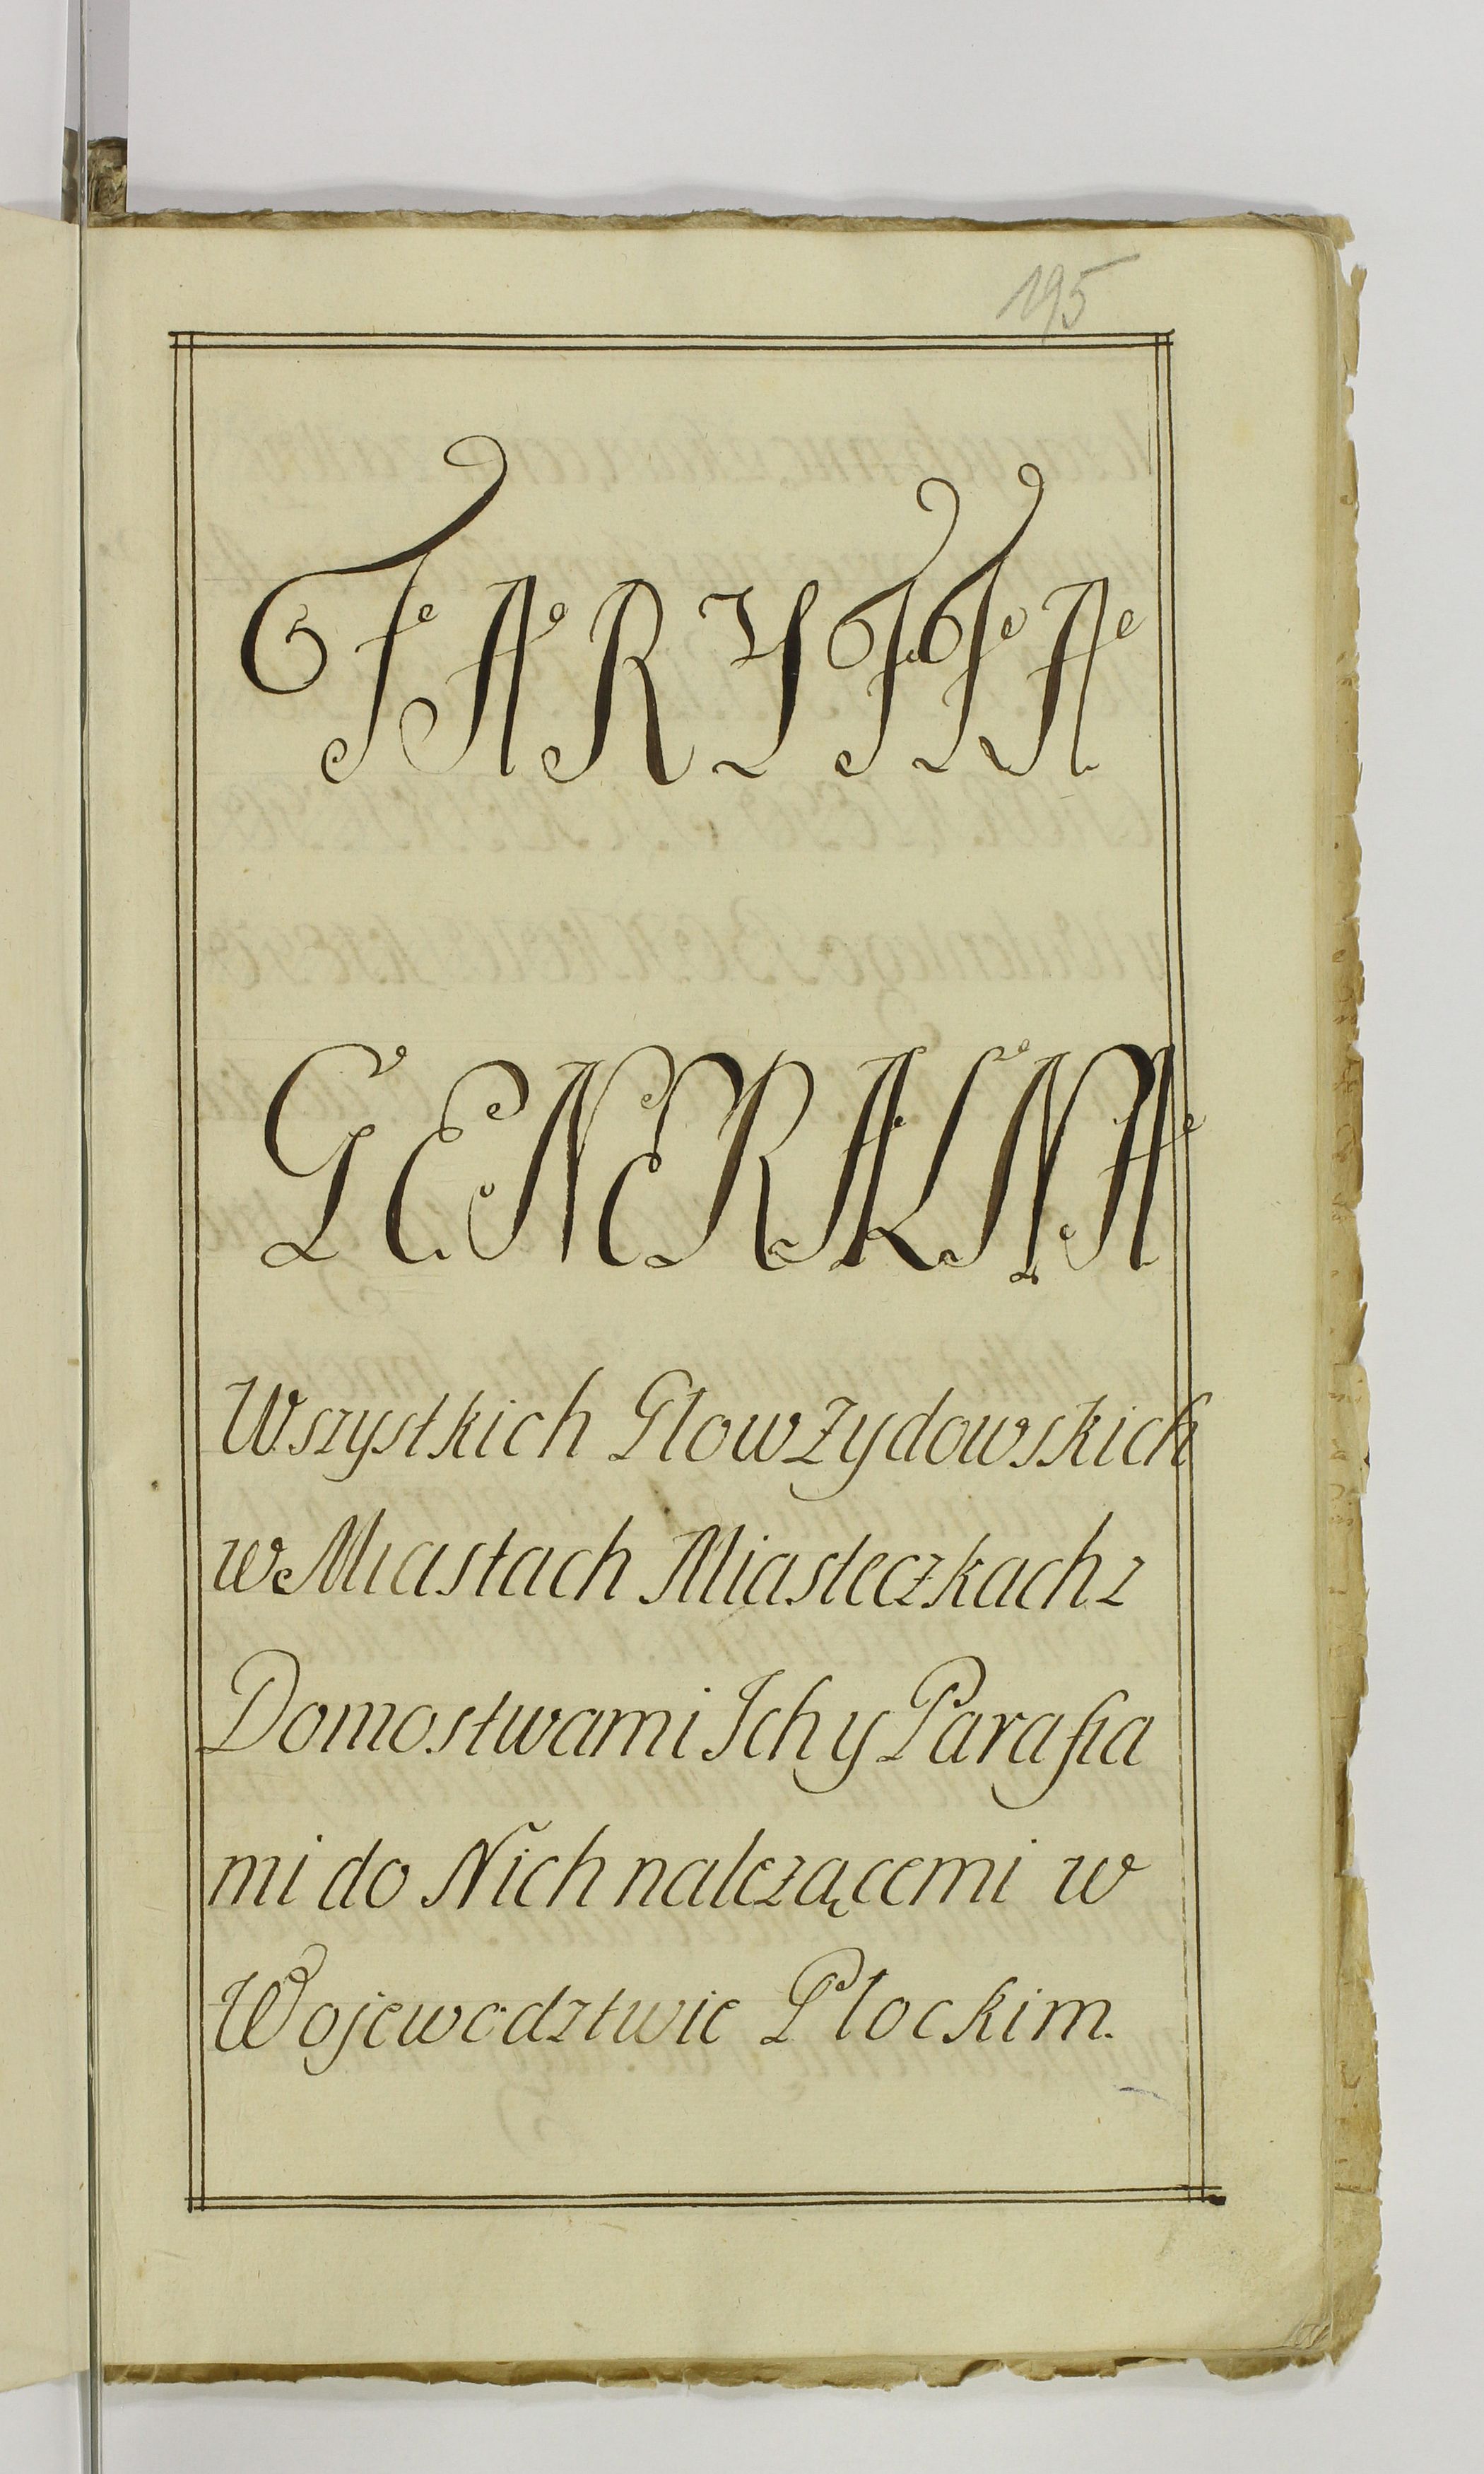 195
TARYFFA
GENERALNA
Wszystkich Glow Zydowskich
w Miastach Miasteczkach z
Domostwami Ich y Parafia
mi do Nich nalezącemi w
Wojewodztwie Plockim.